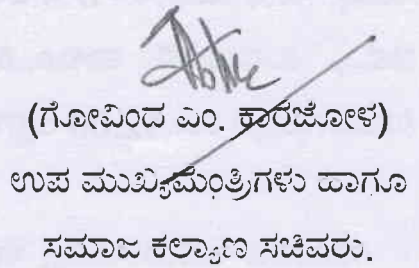 (ಗೋವಿಂದ ಎಂ. ಕಾರಜೋಳ)
ಉಪ ಮುಖ್ಯಮಂತ್ರಿಗಳು ಹಾಗೂ
ಸಮಾಜ ಕಲ್ಯಾಣ ಸಚಿವರು.